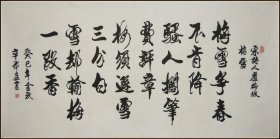 宋诗人卢梅坡
梅雪
梅雪争春
不肯降
骚人搁笔
费评章
梅须逊雪
三分白
雪却输梅
一段香
癸巳年金秋